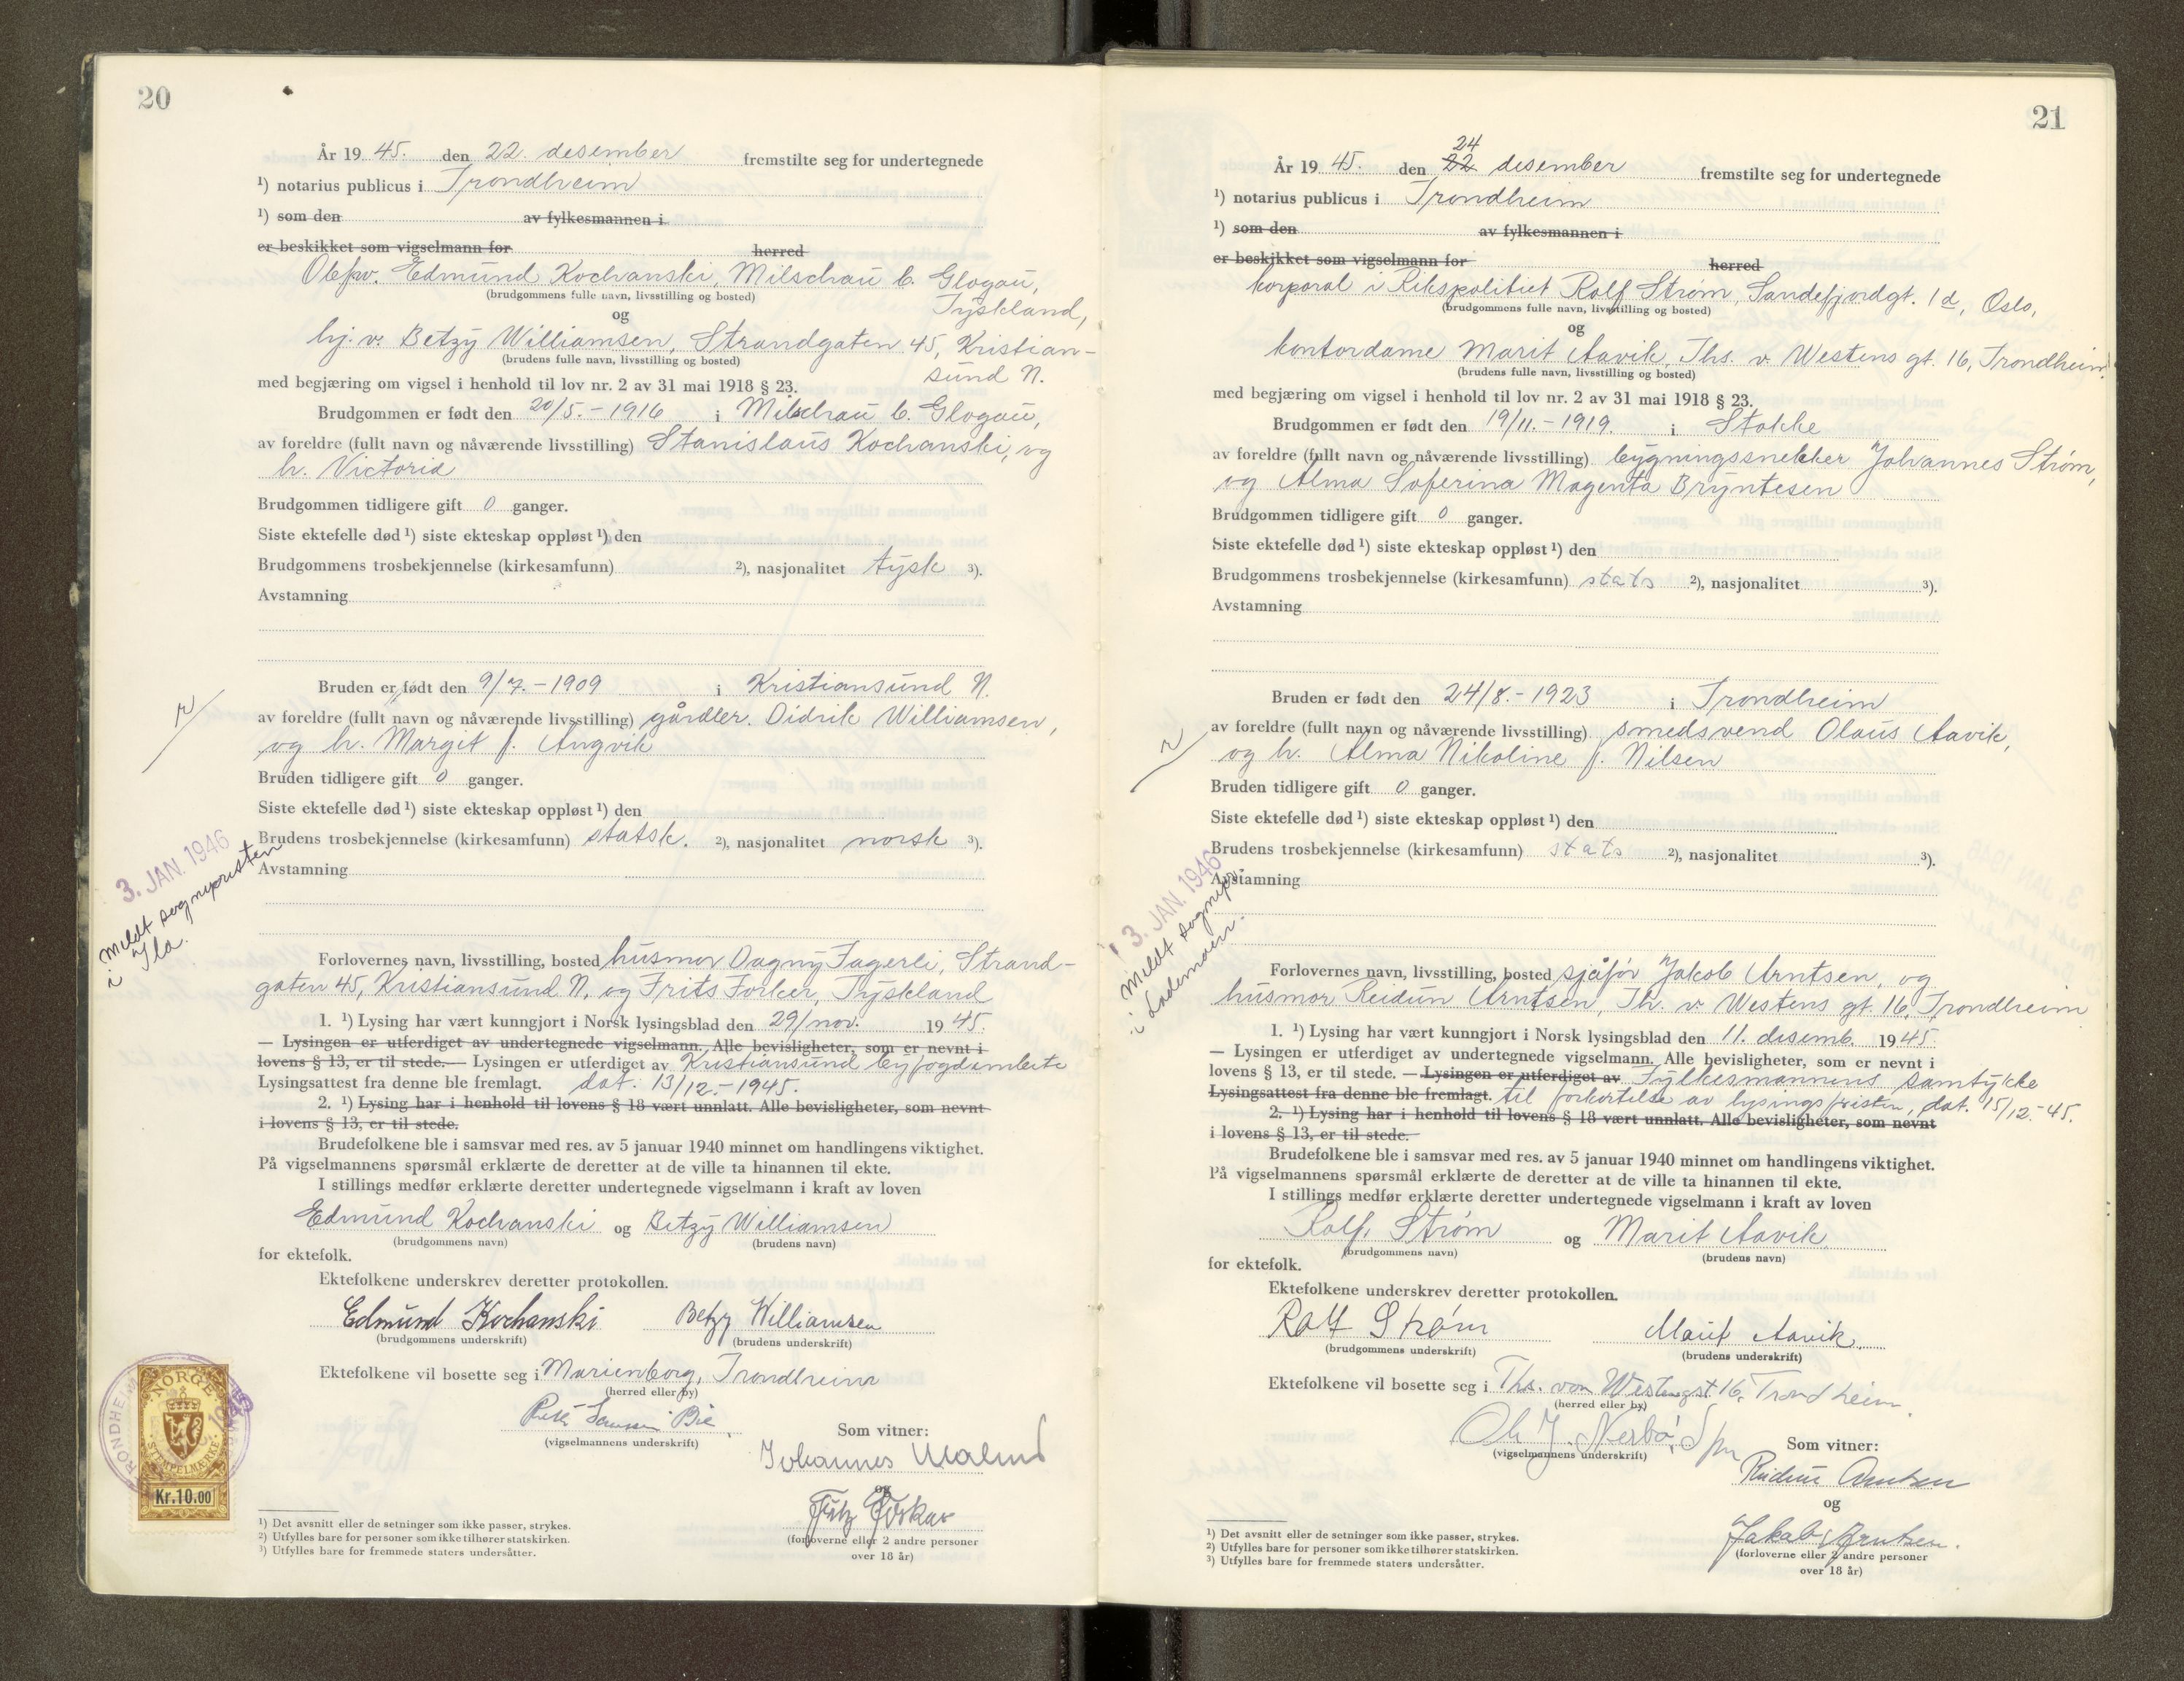 20
År 1945. den 22. desember fremstilte seg for undertegnede
¹) notarius publicus i Trondheim
¹) som den av fylkesmannen i
er beskikket som vigselmann for herred
Edmund Kochanski, Milschau b. Glogau,
(brudgommens fulle navn, livsstilling og bosted) Tyskland,
og
hj. v. Betzy Williamsen, Strandgaten 45, Kristian-
(brudens fulle navn, livsstilling og bosted) sund N.
med begjæring om vigsel i henhold til lov nr. 2 av 31 mai 1918 § 23.
Brudgommen er født den 20/5.-1916 i Milschau b. Glogau,
av foreldre (fullt navn og nåværende livsstilling) Stanislaus Kochanski, og
h. Victoria
Brudgommen tidligere gift 0 ganger.
Siste ektefelle død ¹) siste ekteskap oppløst ¹) den
Brudgommens trosbekjennelse (kirkesamfunn) ²), nasjonalitet tysk ³).
Avstamning
Bruden er født den 9/7.-1909 i Kristiansund N.
av foreldre (fullt navn og nåværende livsstilling) gårdler. Didrik Williamsen,
og h. Margit f. Angvik
Bruden tidligere gift 0 ganger.
Siste ektefelle død ¹) siste ekteskap oppløst ¹) den
Brudens trosbekjennelse (kirkesamfunn) statsk. ²), nasjonalitet norsk ³).
Avstamning
3. JAN. 1946
meldt sogneprsten
i Ila.
Forlovernes navn, livsstilling, bosted husmor Dagny Fagerli, Strand-
gaten 45, Kristiansund N. og Frits Forker, Tyskland
1. ¹) Lysing har vært kunngjort i Norsk lysingsblad den 29/nov. 1945.
— Lysingen er utferdiget av undertegnede vigselmann. Alle bevisligheter, som er nevnt i
lovens § 13, er til stede. — Lysingen er utferdiget av Kristiansund byfogdembete
Lysingsattest fra denne ble fremlagt. dat. 13/12.-1945.
2. ¹) Lysing har i henhold til lovens § 18 vært unnlatt. Alle bevisligheter, som nevnt
i lovens § 13, er til stede.
Brudefolkene ble i samsvar med res. av 5 januar 1940 minnet om handlingens viktighet.
På vigselmannens spørsmål erklærte de deretter at de ville ta hinannen til ekte.
I stillings medfør erklærte deretter undertegnede vigselmann i kraft av loven
Edmund Kochanski og Betzy Williamsen
(brudgommens navn) (brudens navn)
for ektefolk.
Ektefolkene underskrev deretter protokollen.
Edmund Kochanski Betzy Williamsen
(brudgommens underskrift) (brudens underskrift)
Ektefolkene vil bosette seg i Marienborg, Trondheim
(herred eller by)
Bie Som vitner:
(vigselmannens underskrift)
Johannes
og
(forloverne eller 2 andre personer
over 18 år)
NORGE
STEMPELMERKE
Kr.10.00
¹) Det avsnitt eller de setninger som ikke passer, strykes.
²) Utfylles bare for personer som ikke tilhører statskirken.
³) Utfylles bare for fremmede staters undersåtter.
21
24
År 1945. den 22 desember fremstilte seg for undertegnede
¹) notarius publicus i Trondheim
¹) som den av fylkesmannen i
er beskikket som vigselmann for herred
korporal i Rikspolitiet Rolf Strøm, Sandefjordgt. 1d, Oslo,
(brudgommens fulle navn, livsstilling og bosted)
og
kontordame Marit Aavik, Ths. v. Westens gt. 16, Trondheim.
(brudens fulle navn, livsstilling og bosted)
med begjæring om vigsel i henhold til lov nr. 2 av 31 mai 1918 § 23.
Brudgommen er født den 19/11.-1919. i Stokke
av foreldre (fullt navn og nåværende livsstilling) bygningssnekker Johannes Strøm,
og Alma Soferina Magenta Bryntesen
Brudgommen tidligere gift 0 ganger.
Siste ektefelle død ¹) siste ekteskap oppløst ¹) den
Brudgommens trosbekjennelse (kirkesamfunn) stats ²), nasjonalitet ³).
Avstamning
Bruden er født den 24/8.-1923 i Trondheim
av foreldre (fullt navn og nåværende livsstilling) smedsvend Olaus Aavik,
og h. Alma Nikoline f. Nilsen
Bruden tidligere gift 0 ganger.
Siste ektefelle død ¹) siste ekteskap oppløst ¹) den
Brudens trosbekjennelse (kirkesamfunn) stats ²), nasjonalitet ³).
Avstamning
3. JAN. 1946
meldt sognepr.
i Lademoen.
Forlovernes navn, livsstilling, bosted sjåfør Jakob Arntsen, og
husmor Reidun Arntsen, Th. v. Westens gt. 16, Trondheim
1. ¹) Lysing har vært kunngjort i Norsk lysingsblad den 11. desemb. 1945.
— Lysingen er utferdiget av undertegnede vigselmann. Alle bevisligheter, som er nevnt i
lovens § 13, er til stede. — Lysingen er utferdiget av Fylkesmannens samtykke
Lysingsattest fra denne ble fremlagt. til forkortelse av lysingsfristen, dat. 15/12.-45.
2. ¹) Lysing har i henhold til lovens § 18 vært unnlatt. Alle bevisligheter, som nevnt
i lovens § 13, er til stede.
Brudefolkene ble i samsvar med res. av 5 januar 1940 minnet om handlingens viktighet.
På vigselmannens spørsmål erklærte de deretter at de ville ta hinannen til ekte.
I stillings medfør erklærte deretter undertegnede vigselmann i kraft av loven
Rolf Strøm og Marit Aavik
(brudgommens navn) (brudens navn)
for ektefolk.
Ektefolkene underskrev deretter protokollen.
Rolf Strøm Marit Aavik
(brudgommens underskrift) (brudens underskrift)
Ektefolkene vil bosette seg i Ths. von Westensgt. 16, Trondheim.
(herred eller by)
Ole J. Nerbø
(vigselmannens underskrift) Som vitner:
Reidun Arntsen
og
Jakob Arntsen.
(forloverne eller 2 andre personer
over 18 år)
¹) Det avsnitt eller de setninger som ikke passer, strykes.
²) Utfylles bare for personer som ikke tilhører statskirken.
³) Utfylles bare for fremmede staters undersåtter.